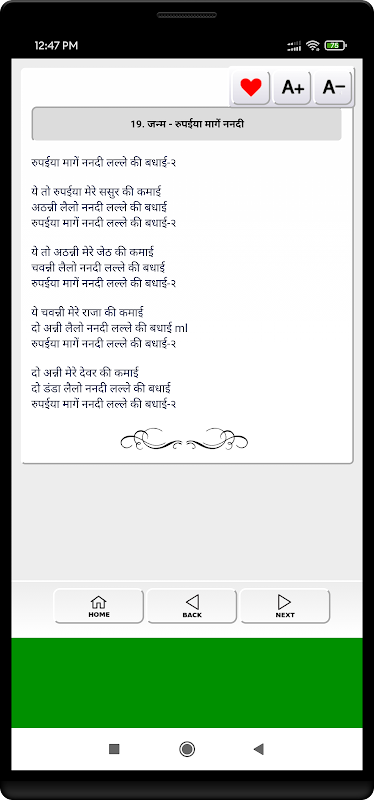 12:47 PM
76
A+ A−
19. जन्म - रुपईया मागें ननदी
रुपईया मागें ननदी लल्ले की बधाई-२
ये तो रुपईया मेरे ससुर की कमाई
अठन्नी लैलो ननदी लल्ले की बधाई
रुपईया मागें ननदी लल्ले की बधाई-२
ये तो अठन्नी मेरे जेठ की कमाई
चवन्नी लैलो ननदी लल्ले की बधाई
रुपईया मागें ननदी लल्ले की बधाई-२
ये चवन्नी मेरे राजा की कमाई
दो अन्नी लैलो ननदी लल्ले की बधाई ml
रुपईया मागें ननदी लल्ले की बधाई-२
दो अन्नी मेरे देवर की कमाई
दो डंडा लैलो ननदी लल्ले की बधाई
रुपईया मागें ननदी लल्ले की बधाई-२
HOME BACK NEXT